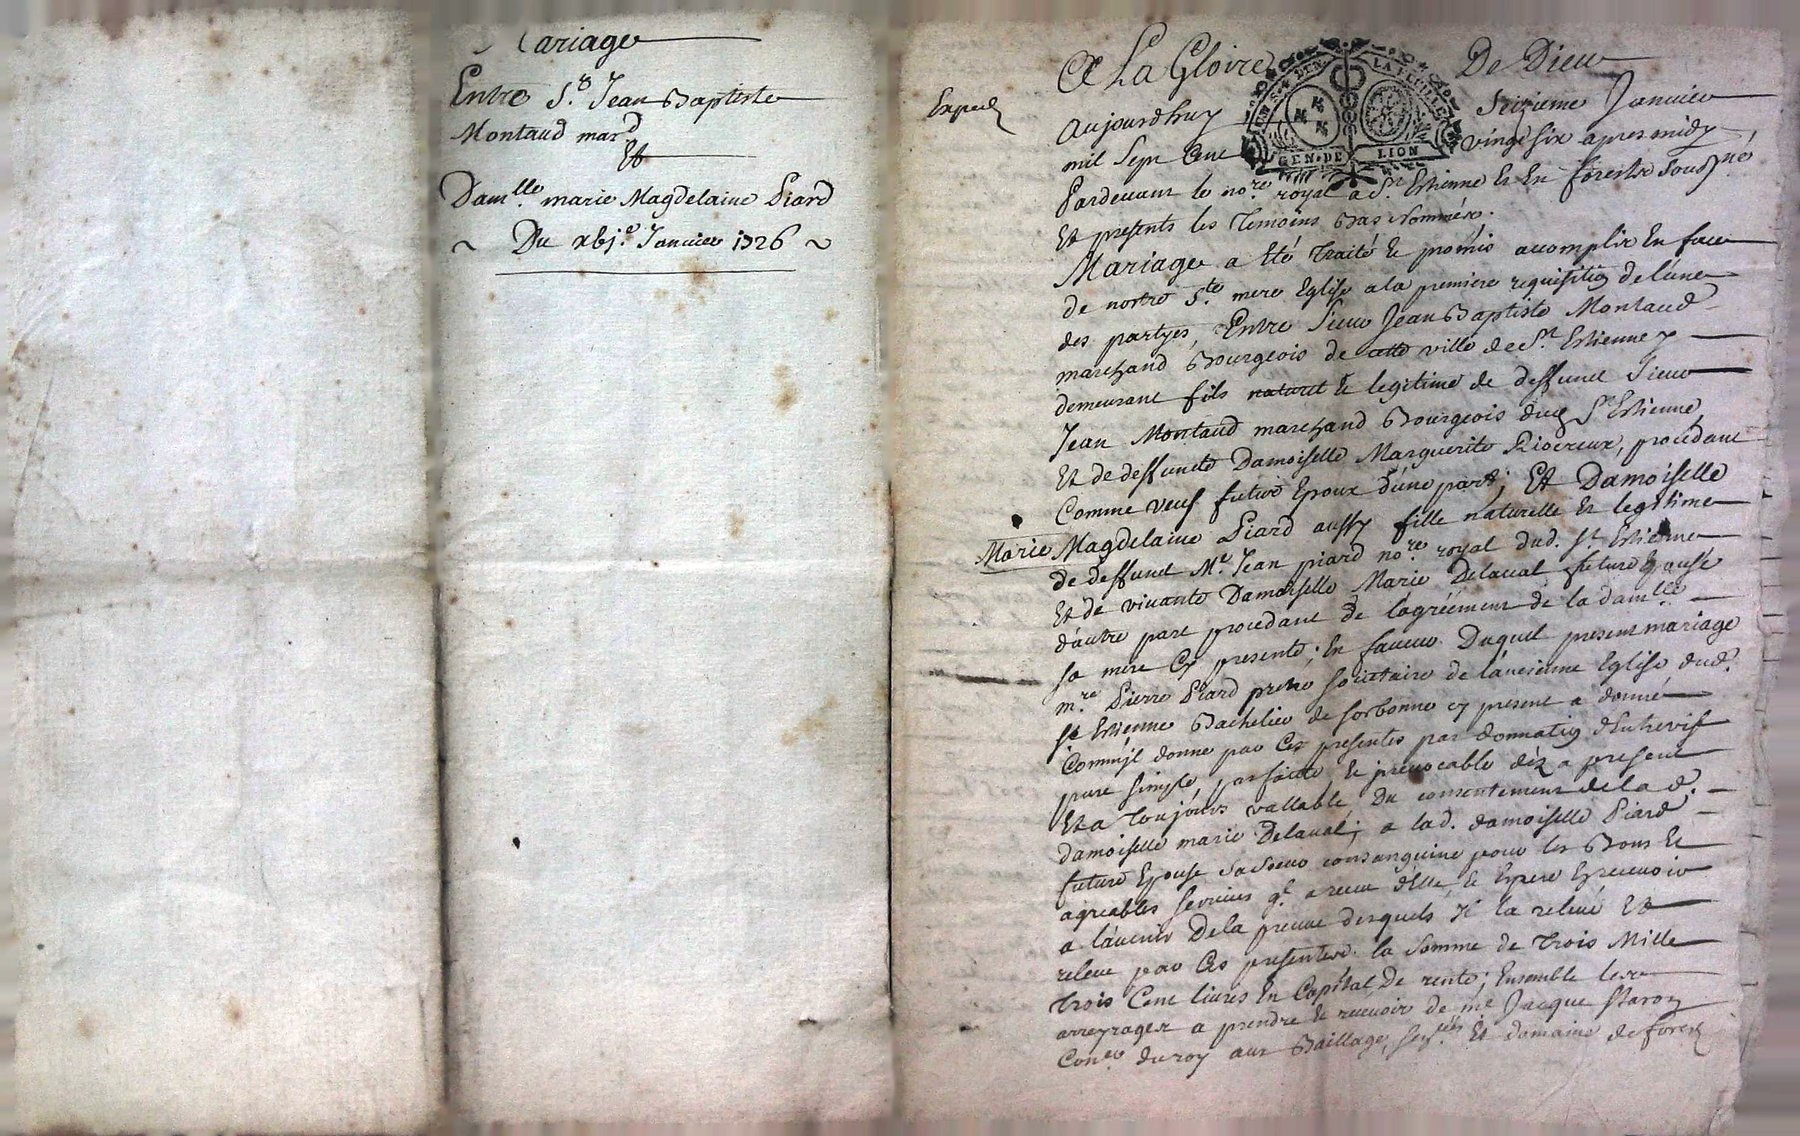 Mariage
Entre Sr. Jean Baptiste
Montaud mard
Et
Damlle. marie Magdelaine Piard
~ Du xbje. Janvier 1726 ~
A La Gloire De Dieu
Exped
Aujourdhuy Seizieme Janvier
mil Sept Cent vingt six apres midy,
GEN. DE LION
Pardevant le nore. royal a St Estienne Et En forestz sousné
Et presents les temoins Bas Nommés.
Mariage a êté traité & promis accomplir En face
de nostre Ste. mere Eglise a la premiere requisition de l'une
des partyes, Entre Sieur Jean Baptiste Montaud
marchand Bourgeois de cette ville de St. Estienne y
demeurant fils naturel & legitime de deffunct Sieur
Jean Montaud marchand Bourgeois dud St Estienne,
Et de deffuncte Damoiselle Marguerite Riocreux, procedant
Comme veuf futur Epoux d'une part; Et Damoiselle
Marie Magdelaine Piard aussy fille naturelle et legitime
de deffunct Me. Jean piard nore. royal dud. St. Estienne
Et de vivante Damoiselle Marie Delaval future Epouse
d'autre part procedant de l'agréement de la damlle.
sa mere Cy presente; En faveur Duquel present mariage
mre. Pierre Piard pretre societaire de l'ancienne Eglise dud.
St Estienne Bachelier de sorbonne cy present a donné
Comm'jl donne par Ces presentes par donnation d'Entrevif
pure simple, parfaite & jrrevocable dèz a present
Et a toujours vallable, Du consentement de la d.
damoiselle marie Delaval; a lad. damoiselle Piard
future Epouse sa soeur consanguine pour les Bons Et
agreables services ql. a receu d'Elle, & Espere En recevoir
a l'avenir De la preuve desquels jl la relevé Et
releve par Ces presentes. la somme de trois Mille
trois Cent livres En Capital De rente; Ensemble les
arreyrages a prendre & recevoir de me Jacque Staron
Coner. du roy aux Baillage, Et domaine de forest